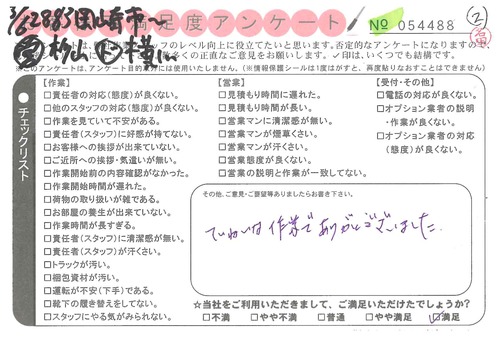 3/6 2883 岡山市〜
満足度アンケート
№ 054488
②
スタッフのレベル向上に役立てたいと思います。否定的なアンケートになりますので
く正直なご意見をお願いします。✓印は、いくつでも結構です。
※このアンケートは、アンケート目的以外には使用いたしません。(※情報保護シールは1度はがすと、再度貼りなおすことはできません)
チェックリスト
【作業】
□責任者の対応(態度)が良くない。
□他のスタッフの対応(態度)が良くない。
□作業を見ていて不安がある。
□責任者(スタッフ)に好感が持てない。
□お客様への挨拶が出来ていない。
□ご近所への挨拶・気遣いが無い。
□作業開始前の内容確認がなかった。
□作業開始時間が遅れた。
□荷物の取り扱いが雑である。
□お部屋の養生が出来ていない。
□作業時間が長すぎる。
□責任者(スタッフ)に清潔感が無い。
□責任者(スタッフ)が汗くさい。
□トラックが汚い。
□梱包資材が汚い。
□運転が不安(下手)である。
□靴下の履き替えをしてない。
□スタッフにやる気がみられない。
【営業】
□見積もり時間に遅れた。
□見積もり時間が長い。
□営業マンに清潔感が無い。
□営業マンが煙草くさい。
□営業マンが汗くさい。
□営業態度が良くない。
□営業の説明と作業が一致してない。
【受付・その他】
□電話の対応が良くない。
□オプション業者の説明
・作業が良くない。
□オプション業者の対応
(態度)が良くない。
その他、ご意見・ご要望等ありましたらお書き下さい。
ていねいな作業で ありがとうございました
☆当社をご利用いただきまして、ご満足いただけたでしょうか?
□不満 □やや不満 □普通 □やや満足 ☑満足